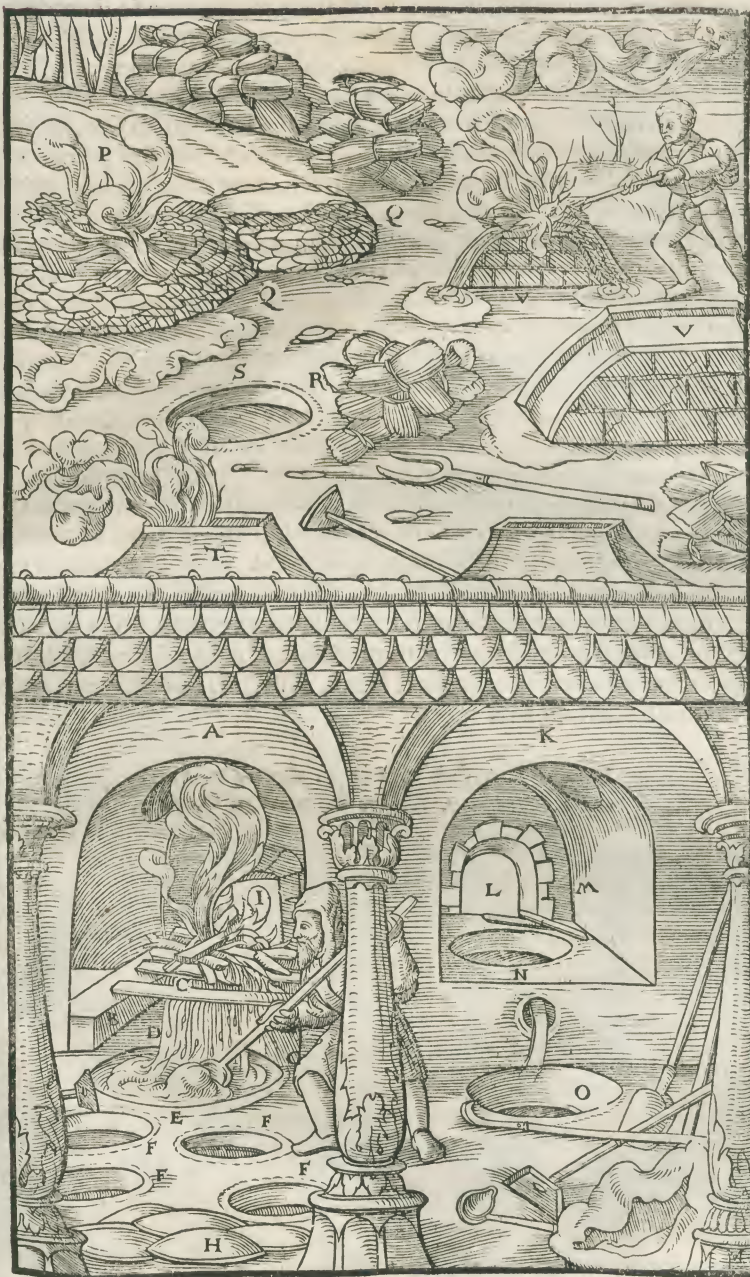 P
Q
V
Q
V
S
R
T
A
K
I
L
M
C
N
D
G
O
E
F
F
F
F
H